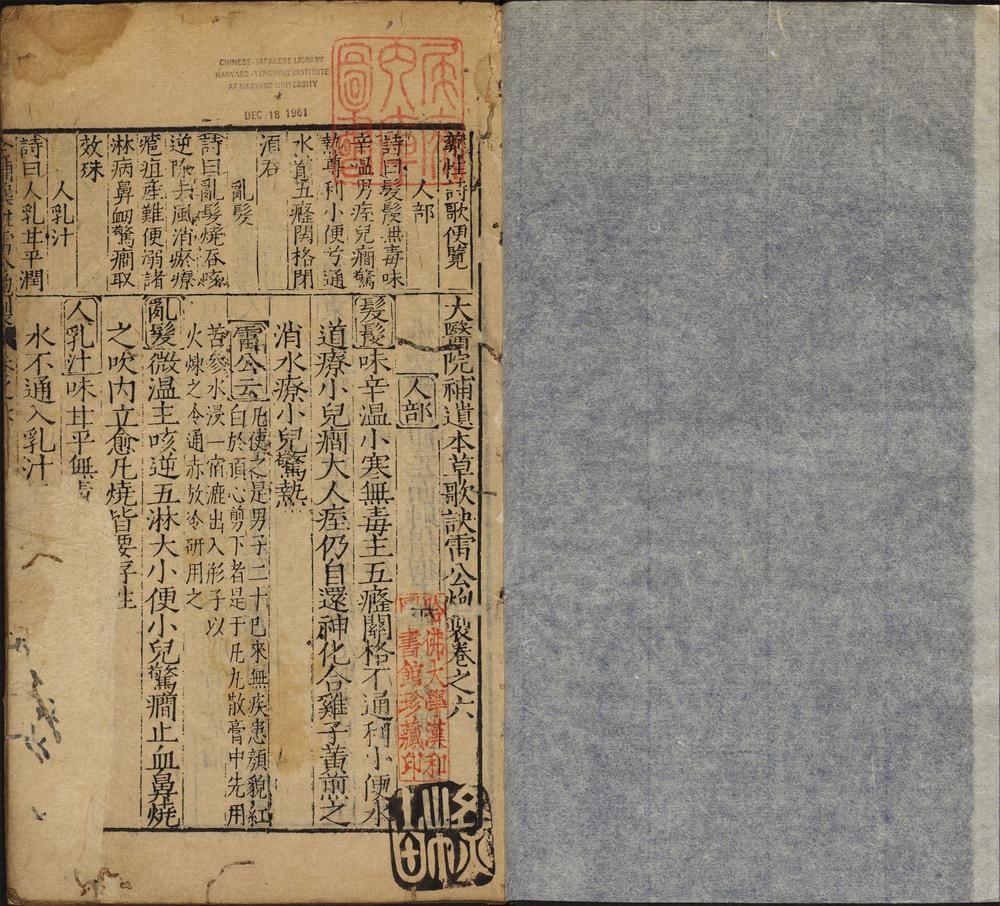 CHINESE-JAPANESE LIBRARY
HARVARD-YENCHING INSTITUTE
AT HARVARD UNIVERSITY
DEC 18 1961
藥性詩歌便覽
人部
詩曰髮髲無毒味
辛溫男痓兒癇驚
熱專利小便兮通
水道五癃関格閉
須吞
亂髮
詩曰亂髮燒吞咳
逆除去風消瘀療
瘡疽産難便溺諸
淋病鼻衂驚癇取
效殊
人乳汁
詩曰人乳甘平潤
太醫院補遺本草歌訣雷公炮製卷之六
人部
髮髲味辛溫小寒無毒主五癃關格不通利小便水
道療小兒癇大人痓仍自還神化合雞子黃煎之
消水療小兒驚熱
雷公云
凡使之是男子二十已來無疾患顏貌紅
白於頂心剪下者是于凡丸散膏中先用
苦參水浸一宿漉出入形子以
火煉之令通赤放冷研用之
亂髮微溫主咳逆五淋大小便小兒驚癇止血鼻燒
之吹內立愈凡燒皆要存性
人乳汁味甘平無毒
水不通入乳汁
哈佛大學漢和
圖書館珍藏印